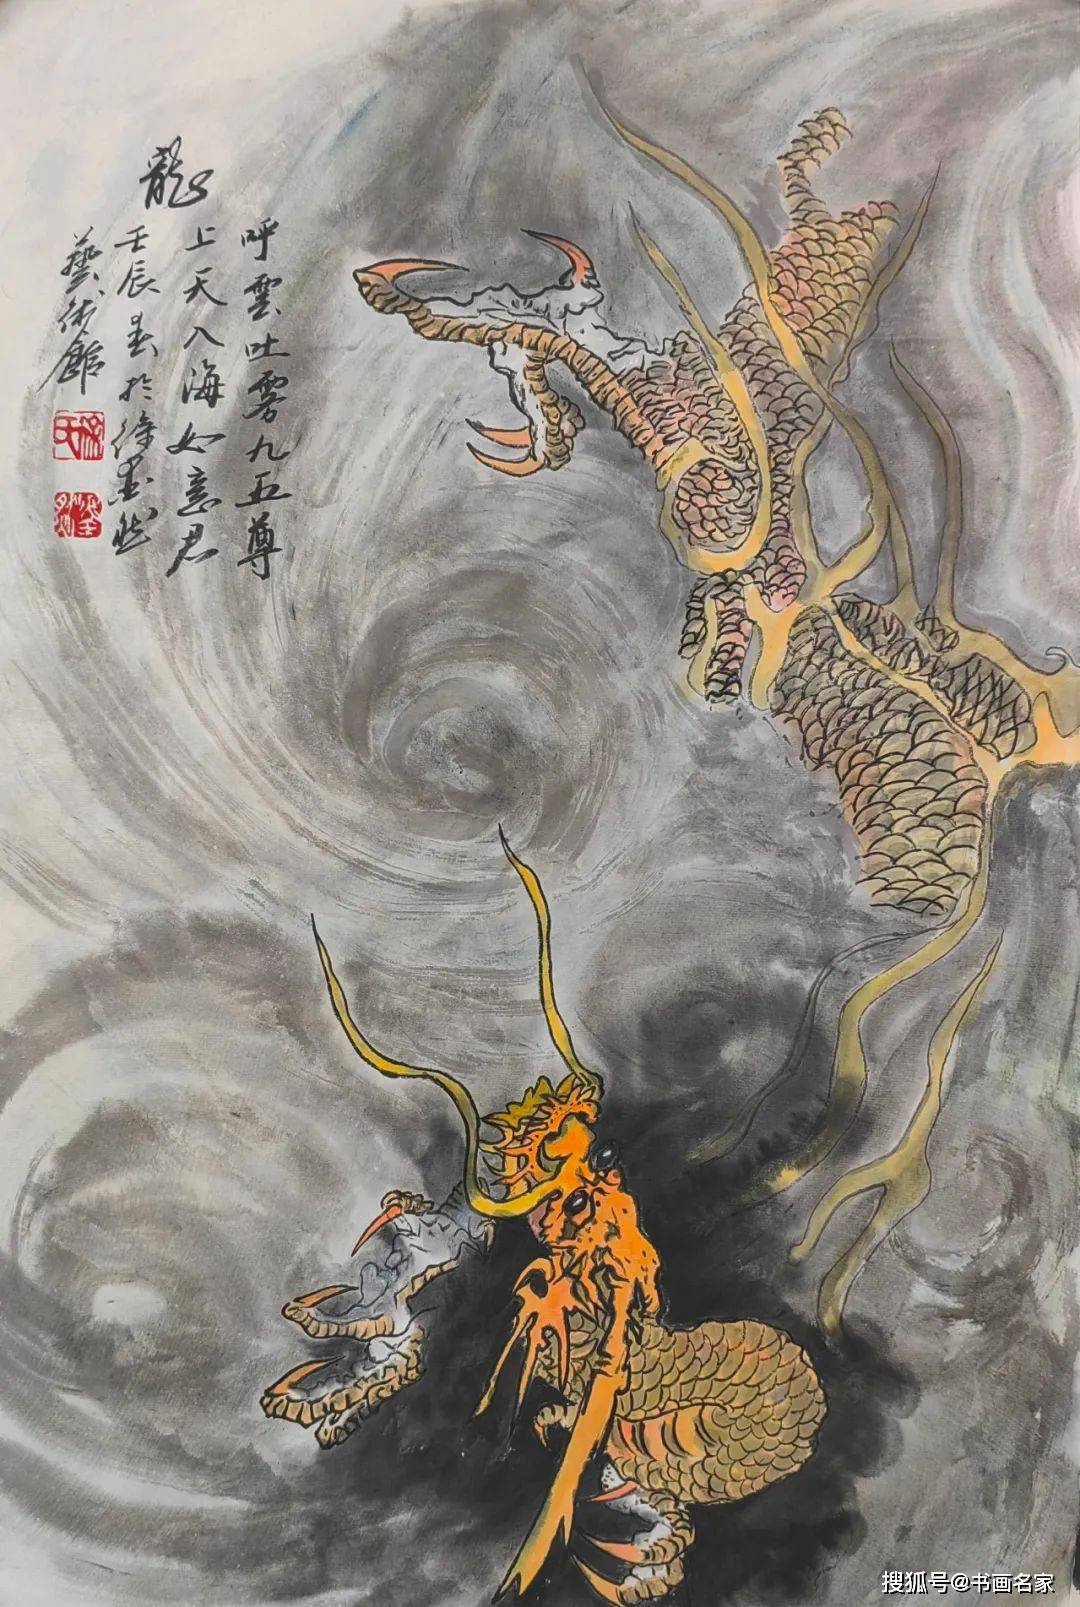 龍
呼雲吐雾九五尊
上天入海如意君
壬辰春於徐墨然
藝術館
搜狐号@书画名家